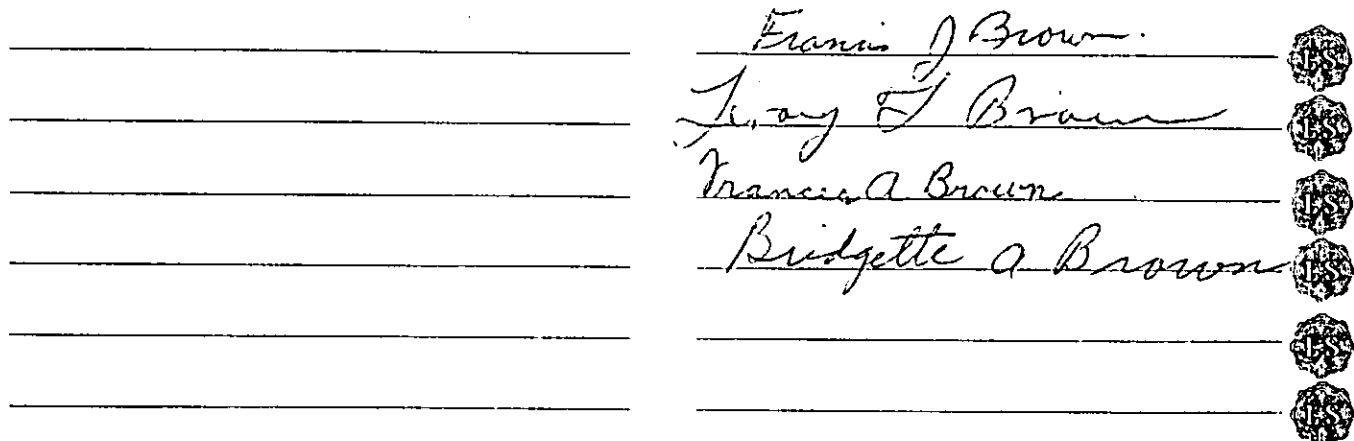 Francis J Brown. LS
Brown LS
Francis A Brown LS
Bridgette A Brown LS
LS
LS